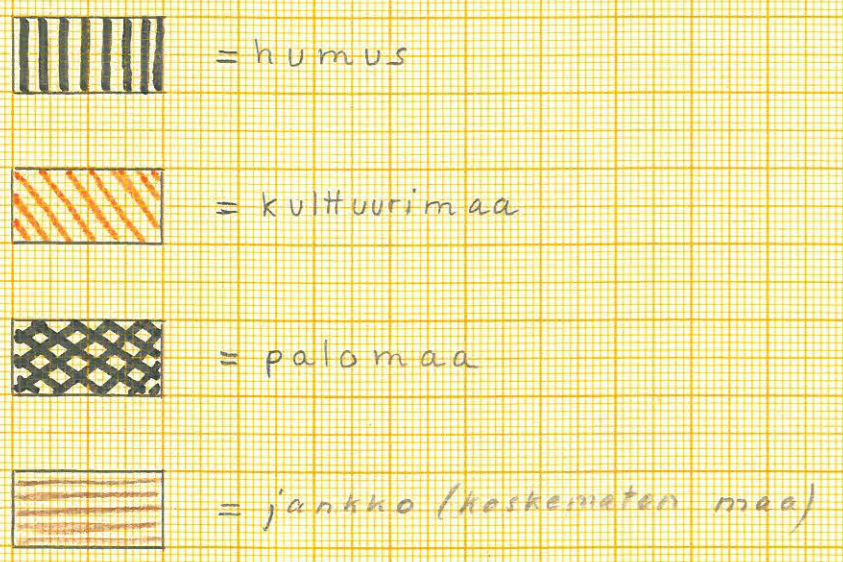 = humus
= kulttuurimaa
= palomaa
= jankko (koskematon maa)